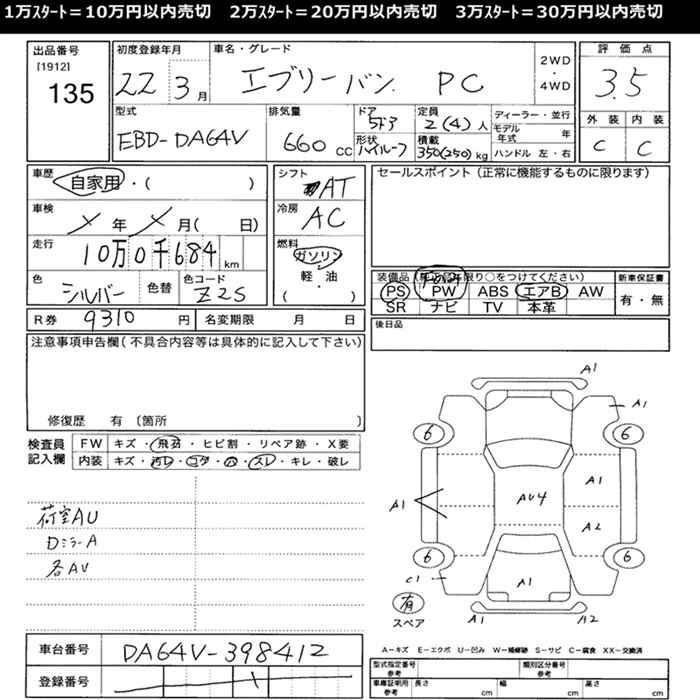 1万スタート＝10万円以内売切　2万スタート＝20万円以内売切　3万スタート＝30万円以内売切
出品番号 [1912] 135
初度登録年月 22 3月
車名・グレード エブリーバン PC
2WD・4WD
評価点 3.5
型式 EBD-DA64V
排気量 660 cc
ドア 5ドア
形状 ハイルーフ
定員 2(4)人
積載 350(250)kg
ディーラー・並行
モデル年式 年
ハンドル 左・右
外装 内装
C C
車歴 自家用・( )
車検 メ年メ月( 日)
走行 10万0千684km
色 シルバー 色替 色コード Z2S
シフト AT
冷房 AC
燃料 ガソリン
軽・油
( ・ )
セールスポイント(正常に機能するものに限ります)
をつけてください)
新車保証書 有・無
PS PW ABS エアB AW
SR ナビ TV 本革
R券 9310円 名変期限 月 日
後日品
注意事項申告欄(不具合内容等は具体的に記入して下さい)
修復歴 有 〔箇所 〕
検査員記入欄
FW キズ・飛石・ヒビ割・リペア跡・X要
内装 キズ・汚レ・コゲ・穴・スレ・キレ・破レ
荷室AU
DミラーA
各AU
A1
A1
6 6
A1
A1 AU4
A2
6 6
C1 A1
有
スペア
A1 A2
A－キズ E－エクボ U－凹み W－補修跡 S－サビ C－腐食 XX－交換済
車台番号 DA64V-398412
登録番号
型式指定番号 参考
類別区分番号 参考
車庫証明用 参考 長さ cm 幅 cm 高さ cm